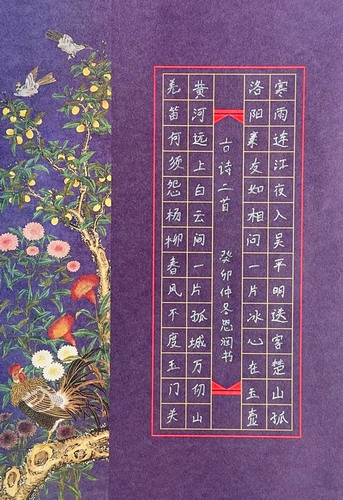 寒雨连江夜入吴平明送客楚山孤
洛阳亲友如相问一片冰心在玉壶
古诗二首 癸卯仲冬润书
黄河远上白云间一片孤城万仞山
羌笛何须怨杨柳春风不度玉门关